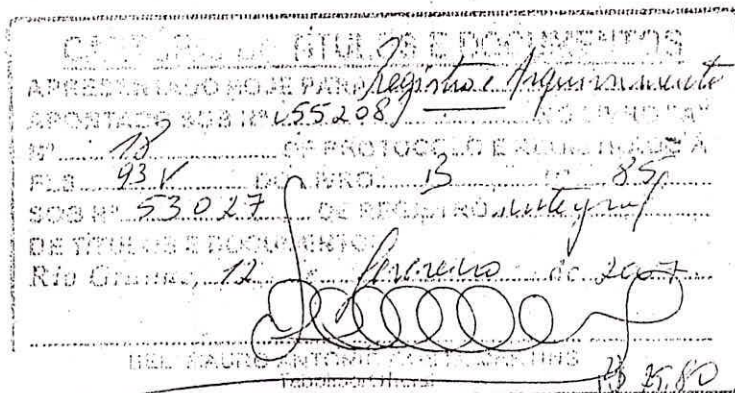 TÍTULOS E DOCUMENTOS
APRESENTADO HOJE PARA Registro e Arquivamento
APONTADO SOB Nº 55208 NO LIVRO "A"
Nº 18 DE PROTOCOLO E
FLS. 93 V DO LIVRO B Nº 85
SOB Nº 53027 DE REGISTRO integral
DE TÍTULOS E DOCUMENTOS
Rio Grande, 12 de fevereiro de 2007
BEL. MAURO ANTONIO